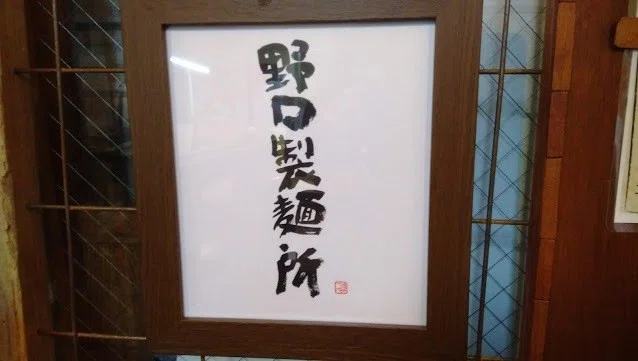 野口製麺所